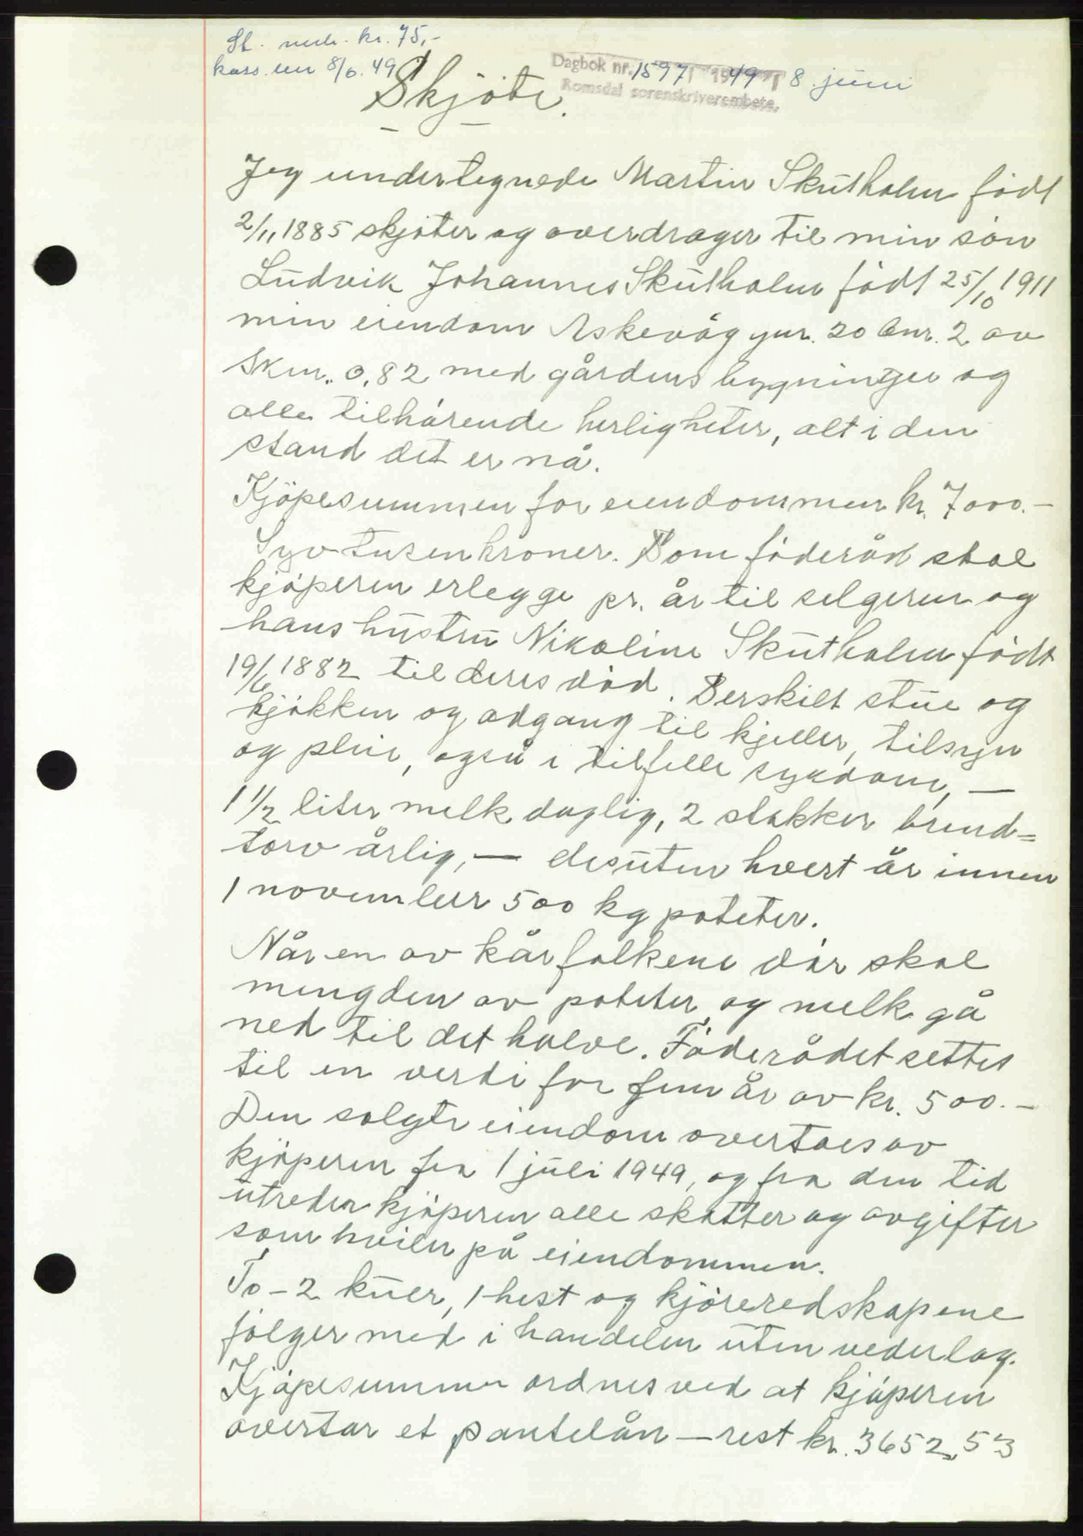 St. merk. kr. 75,-
kass. den 8/6. 49
Dagbok nr. 1597 1949 8. juni
Romsdal sorenskriverembete.
Skjøte.
Jeg undertegnede Martin Skutholm född
2/11, 1885 skjøter og overdrager til min sön
Ludvik Johannes Skutholm född 25/10 1911
min eiendom Askevåg gnr. 20 bnr. 2 av
Skm. 0,82 med gårdens bygninger og
alle tilhörende herligheter, alt i den
stand det er nå.
Kjöpesummen for eiendommen kr. 7000.-
Syv tusen kroner. Som föderåd skal
kjöperen erlegge pr. år til selgeren og
hans hustru Nikoline Skutholm födt
19/6 1882 til deres död. Særskilt stue og
kjökken og adgang til kjeller, tilsyn
og pleie, også i tilfelle sykdom, —
1 1/2 liter melk daglig, 2 stakker brend=
torv årlig, — desuten hvert år innen
1 november 500 kg poteter.
Når en av kårfolkene dör skal
mengden av poteter og melk gå
ned til det halve. Föderådet settes
til en verdi for fem år av kr. 500.-
Den solgte eiendom overtaes av
kjöperen fra 1 juli 1949, og fra den tid
utreder kjöperen alle skatter og avgifter
som hviler på eiendommen.
To - 2 kuer, 1 hest og kjöreredskapene
fölger med i handelen uten vederlag.
Kjöpesummen ordnes ved at kjöperen
overtar et pantelån — rest kr. 3652,53